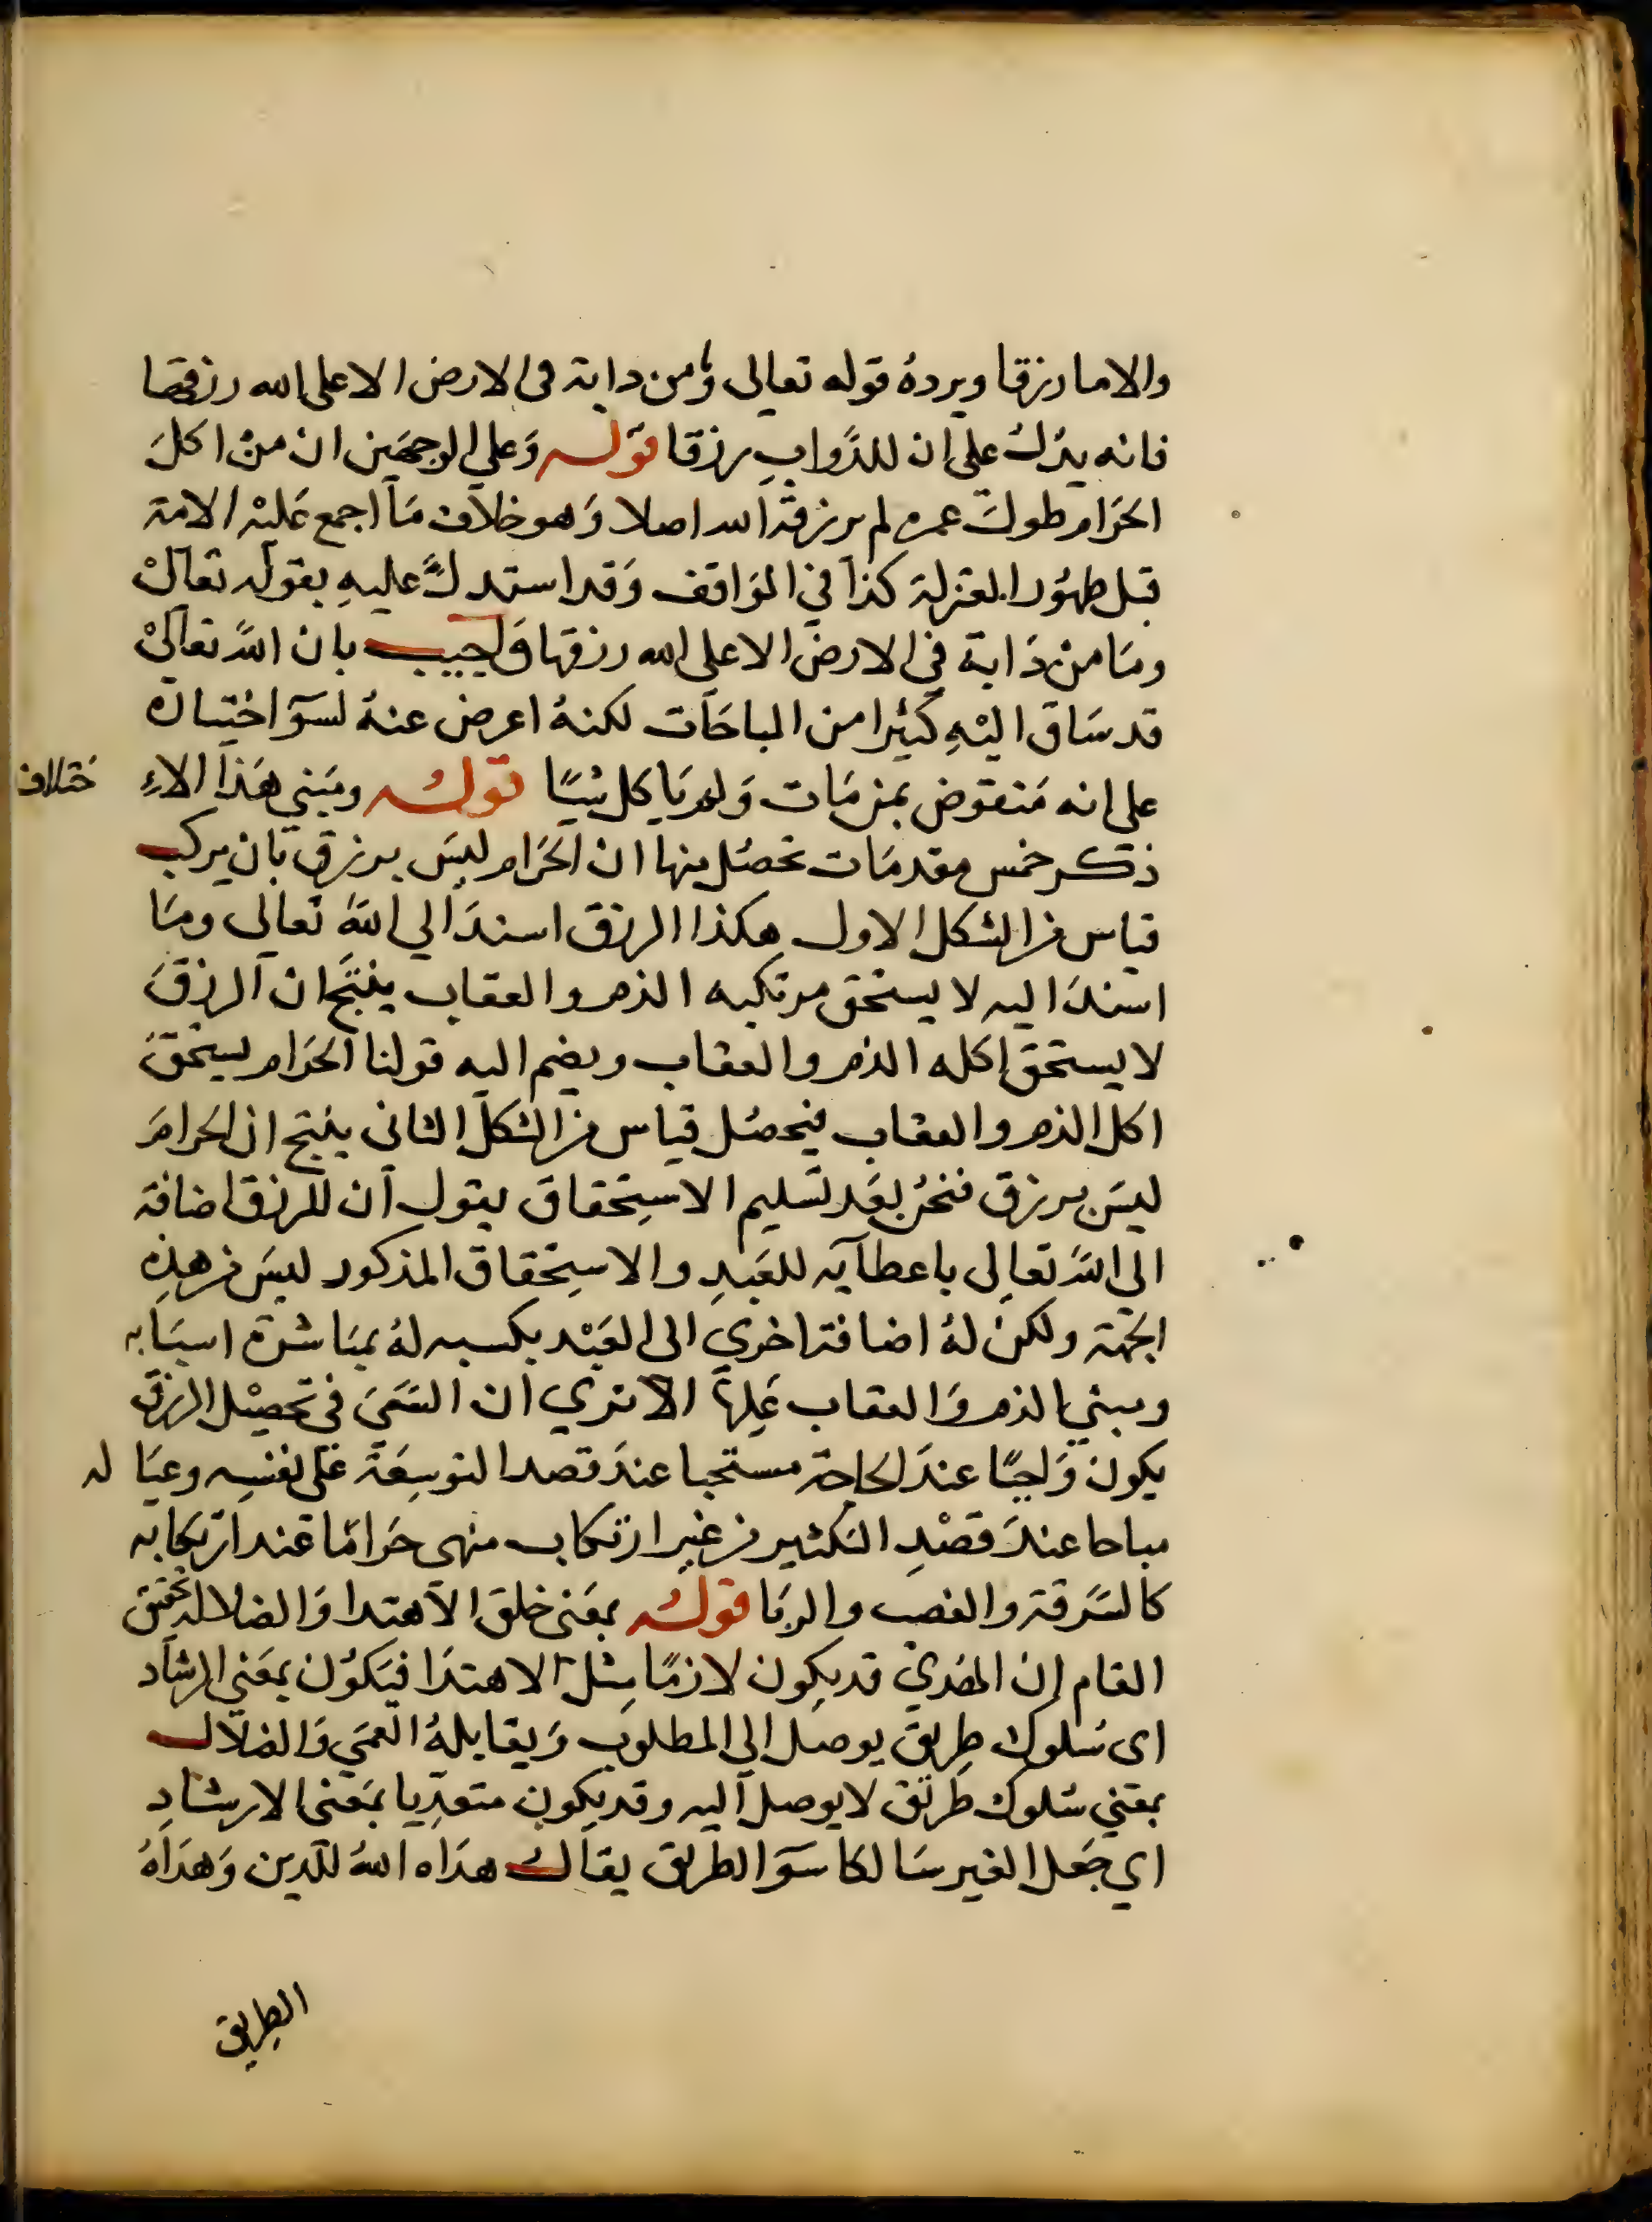 والاما رزقا ويرده قوله تعالى وما من دابة فى الارض الا على الله رزقها
فانه يدل على ان للدواب رزقا قوله وعلي الوجهين ان من اكل
الحرام طول عمره لم يرزقه الله اصلا وهو خلاف ما اجمع عليه الامة
قبل ظهور المعتزلة كذا في المواقف وقد استدل عليه بقوله تعالى
وما من دابة في الارض الا على الله رزقها واجيب بان الله تعالى
قد ساق اليه كثيرا من المباحات لكنه اعرض عنه لسوء اختياره
على انه منقوض بمن مات ولم ياكل شيئا قوله ومبني هذا الاختلاف
ذكر خمس مقدمات تحصل منها ان الحرام ليس برزق بان يركب
قياس من الشكل الاول هكذا الرزق اسند الي الله تعالى وما
اسند اليه لا يستحق مرتكبه الذم والعقاب ينتج ان الرزق
لا يستحق اكله الذم والعقاب ويضم اليه قولنا الحرام يستحق
اكل الذم والعقاب فيحصل قياس من الشكل الثانى ينتج ان الحرام
ليس برزق فنحن بعد تسليم الاستحقاق نقول ان للرزق اضافة
الى الله تعالى باعطآيه للعبد والاستحقاق المذكور ليس من هذه
الجهة ولكن له اضافة اخري الى العبد بكسبه له بمباشرة اسبابه
ومبني الذم والعقاب عليها الا تري ان السعى فى تحصيل الرزق
يكون واجبا عند الحاجة مستحبا عند قصد التوسعة على نفسه وعياله
مباحا عند قصد التكثير من غير ارتكاب منهى حراما عند ارتكابه
كالسرقة والغصب والربا قوله بمعنى خلق الاهتدا والضلالة تحقيق
المقام ان الهدي قد يكون لازما مثل الاهتدا فيكون بمعني الرشاد
اى سلوك طريق يوصل الى المطلوب ويقابله العمى والضلال
بمعني سلوك طريق لا يوصل اليه وقد يكون متعديا بمعنى الارشاد
اي جعل الغير سالكا سوا الطريق يقال هداه الله للدين وهداه
الطريق